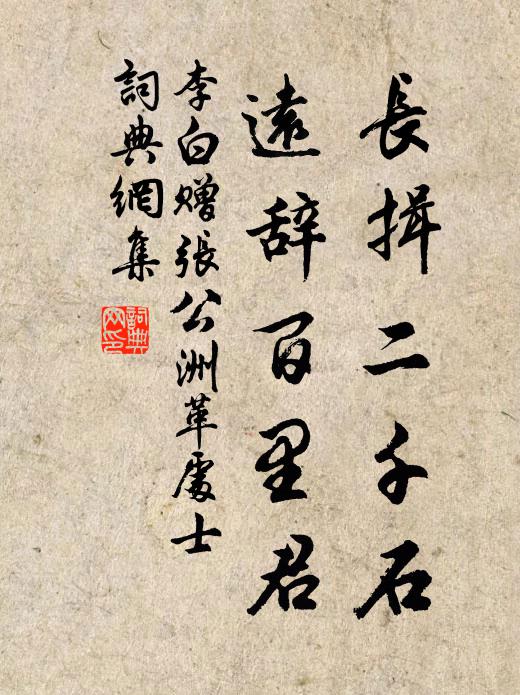 長揖二千石
遠辞百里君
李白贈張公洲革處士
詞典網集
詞典网印